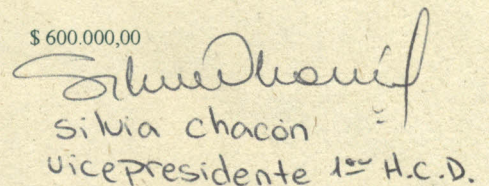 $ 600.000,00
Silvia Chacón
silvia chacón
vicepresidente 1ero H.C.D.